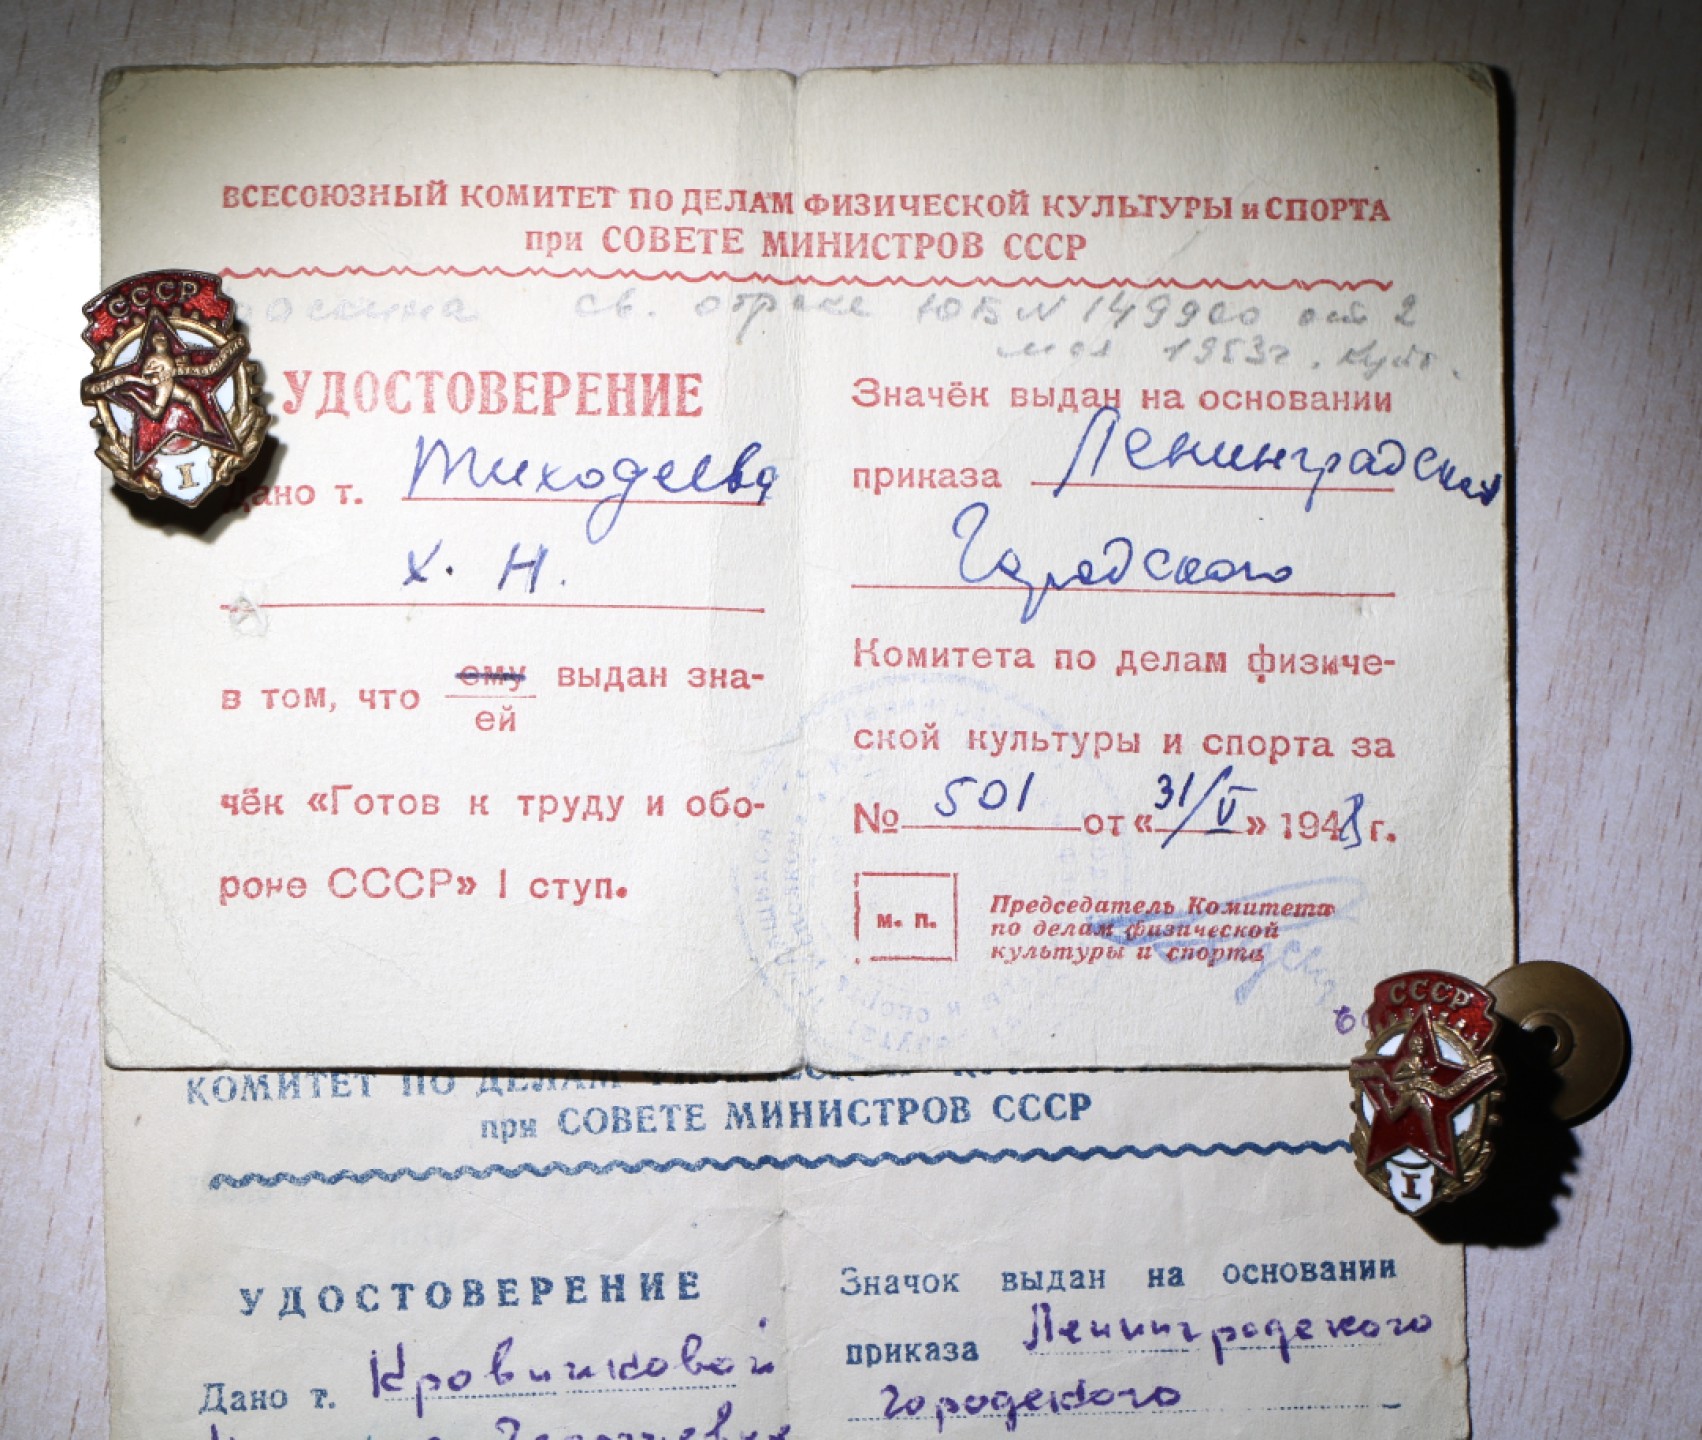 ВСЕСОЮЗНЫЙ КОМИТЕТ ПО ДЕЛАМ ФИЗИЧЕСКОЙ КУЛЬТУРЫ и СПОРТА
при СОВЕТЕ МИНИСТРОВ СССР
св. о браке ЮБ N 149900 от 2
мая 1953г.
СССР
I
УДОСТОВЕРЕНИЕ
Дано т. Тиходеева
Х. Н.
в том, что ему выдан зна-
ей
чёк «Готов к труду и обо-
роне СССР» I ступ.
Значёк выдан на основании
приказа Ленинградский
Городского
Комитета по делам физиче-
ской культуры и спорта за
№ 501 от «31/V» 1948 г.
м. п.
Председатель Комитета
по делам физической
культуры и спорта
СССР
I
КОМИТЕТ ПО ДЕЛАМ
при СОВЕТЕ МИНИСТРОВ СССР
УДОСТОВЕРЕНИЕ
Дано т. Кровяковой
Значок выдан на основании
приказа Ленинградского
Городского